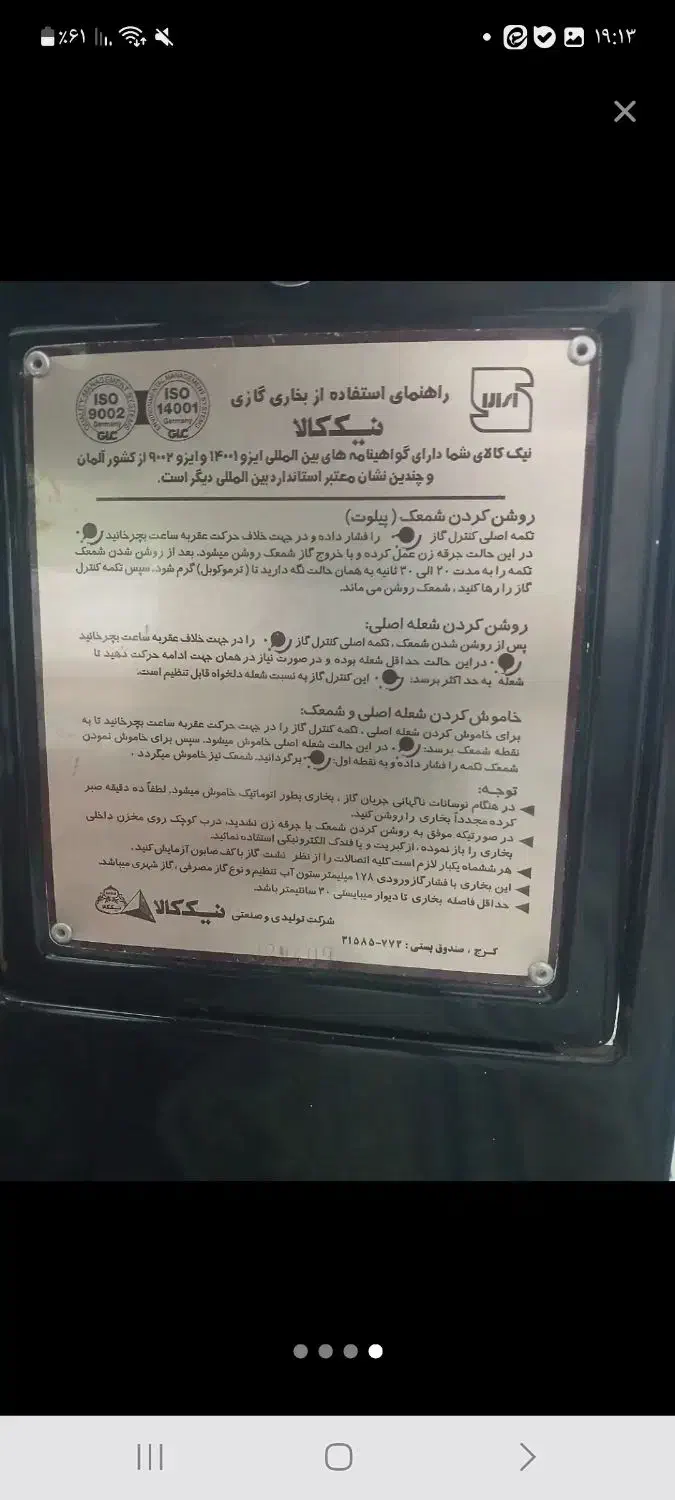 ٪۶۱
۱۹:۱۳
راهنمای استفاده از بخاری گازی
نیک کالا
QUALITY MANAGEMENT SYSTEMS
ISO
9002
Germany
GLC
ENVIRONMENTAL MANAGEMENT SYSTEMS
ISO
14001
Germany
GLC
نیک کالای شما دارای گواهینامه های بین المللی ایزو ۱۴۰۰۱ و ایزو ۹۰۰۲ از کشور آلمان
و چندین نشان معتبر استاندارد بین المللی دیگر است.
روشن کردن شمعک ( پیلوت)
تکمه اصلی کنترل گاز را فشار داده و در جهت خلاف حرکت عقربه ساعت بچرخانید
در این حالت جرقه زن عمل کرده و با خروج گاز شمعک روشن میشود. بعد از روشن شدن شمعک
تکمه را به مدت ۲۰ الی ۳۰ ثانیه به همان حالت نگه دارید تا ( ترموکوپل) گرم شود. سپس تکمه کنترل
گاز را رها کنید ، شمعک روشن می ماند.
روشن کردن شعله اصلی:
پس از روشن شدن شمعک ، تکمه اصلی کنترل گاز را در جهت خلاف عقربه ساعت بچرخانید
در این حالت حداقل شعله بوده و در صورت نیاز در همان جهت ادامه حرکت دهید تا
شعله به حد اکثر برسد: این کنترل گاز به نسبت شعله دلخواه قابل تنظیم است.
خاموش کردن شعله اصلی و شمعک:
برای خاموش کردن شعله اصلی ، تکمه کنترل گاز را در جهت حرکت عقربه ساعت بچرخانید تا به
نقطه شمعک برسد: در این حالت شعله اصلی خاموش میشود. سپس برای خاموش نمودن
شمعک تکمه را فشار داده و به نقطه اول: برگردانید. شمعک نیز خاموش میگردد .
توجه:
در هنگام نوسانات ناگهانی جریان گاز ، بخاری بطور اتوماتیک خاموش میشود. لطفاً ده دقیقه صبر
کرده مجدداً بخاری را روشن کنید.
در صورتیکه موفق به روشن کردن شمعک با جرقه زن نشدید، درب کوچک روی مخزن داخلی
بخاری را باز نموده ، از کبریت و یا فندک الکترونیکی استفاده نمائید.
هر ششماه یکبار لازم است کلیه اتصالات را از نظر نشت گاز با کف صابون آزمایش کنید.
این بخاری با فشار گاز ورودی ۱۷۸ میلیمتر ستون آب تنظیم و نوع گاز مصرفی ، گاز شهری میباشد.
حداقل فاصله بخاری تا دیوار میبایستی ۳۰ سانتیمتر باشد.
شرکت تولیدی و صنعتی نیک کالا
کرج ، صندوق پستی : ۷۷۴-۳۱۵۸۵